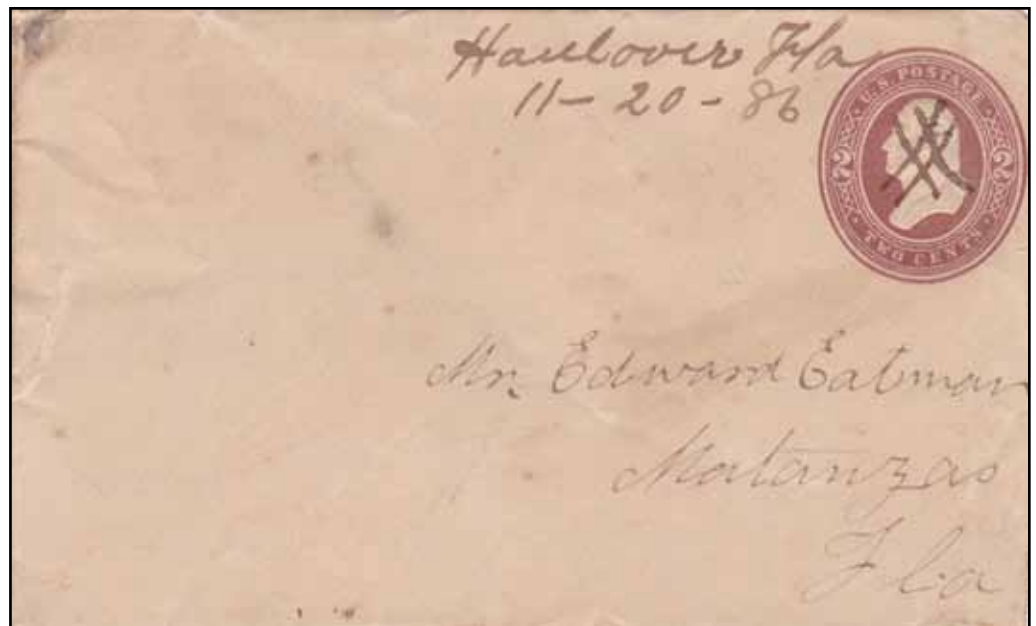 Haulover Fla
11 - 20 - 86
U.S. POSTAGE
2 2
TWO CENTS
Mr. Edward Eatman
Matanzas
Fla